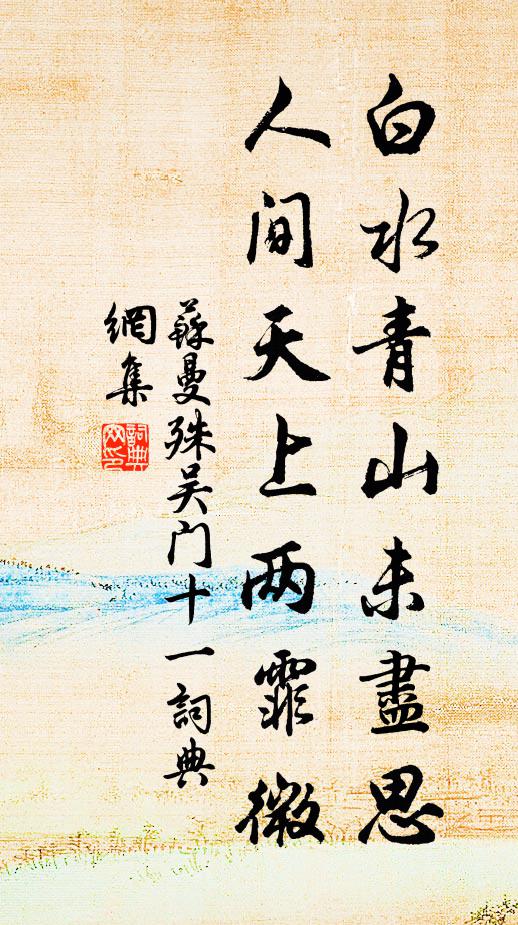 白水青山未盡思
人间天上两霏微
蘇曼殊吴门十一詞典
網集
詞典